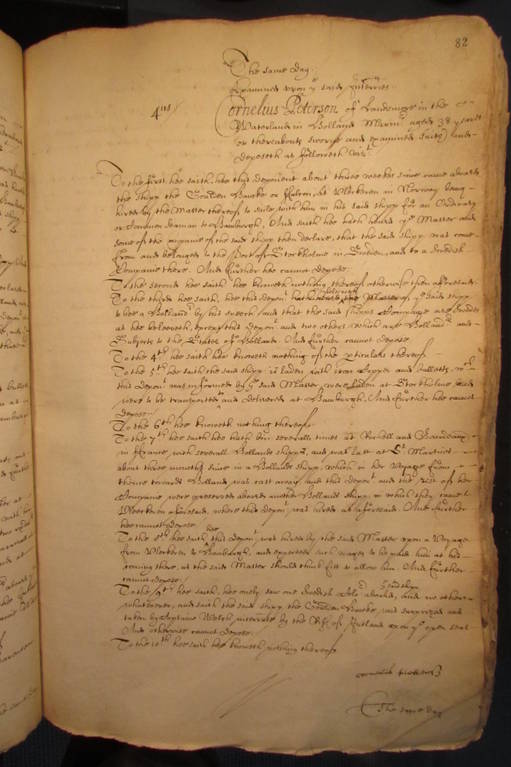 82
The same day.
Examined upon ye said Interries.
4us / Cornelius Peterson of in the
Waterland in Holland Marinr. aged 38 yeares
or thereabouts sworne and examined saith and
deposeth as followeth vizt.
To the first hee saith, hee this deponent about three weekes since came aboard
the shipp the Golden or Falcon, at in Norway being
hired by the Master thereof to saile with him in his said shipp for an Ordinary
or Common Seaman to Hamburgh, And saith hee hath heard ye Master and
some of the companie of the said shipp then declare, that the said shipp was come
from and belonged to the Port of Stockholme in Sweden, and to a Swedish
Companie there. And further hee cannot depose.
To the second hee saith, hee knoweth nothing thereof otherwise then aforesaid.
To the third hee saith, hee this depont the Master of ye said shipp
to bee a Hollander by his speech, and that the said shipps Companie are Swedes
as hee beleeveth, except this depont and two others which are Hollanders and
Subjects to the States of Holland. And further cannot depose.
To the 4th hee saith hee knoweth nothing of the perticulars thereof.
To the 5th hee saith the said shipp is laden with iron Copper and wch
this Deponent was informed by ye said Master, were laden at Stockholme and
were to be transported to and delivered at Hamburgh. And further hee cannot
depose.
To the 6th hee knoweth nothing thereof.
To the 7th hee saith hee hath bin severall times at Rochell and
in France, with severall Hollands shipps, and was last at St Martins
about three moneths since in a Hollands shipp, which in her voyage from
thence towards Holland was cast away, and this deponent and the rest of her
Companie were preserved aboard another Hollands shipp in which they came to
aforesaid, where this deponent was hired as aforesaid. And further
hee cannot depose.
To the 8th hee saith, hee this deponent was hired by the said Master upon a voyage
from to Hamburgh, and expected such wages to be paid him at his
coming there, as the said Master should think fitt to allow him. And further
cannot depose.
To the 9th hee saith, hee only saw one Swedish aboard, and no other
whatsoever, and saith the said shipp the Golden was surprized and
taken by Captaine Welch, in the of upon ye open seas
And otherwise cannot depose.
To the 10th hee saith hee knoweth nothing thereof.
The same day